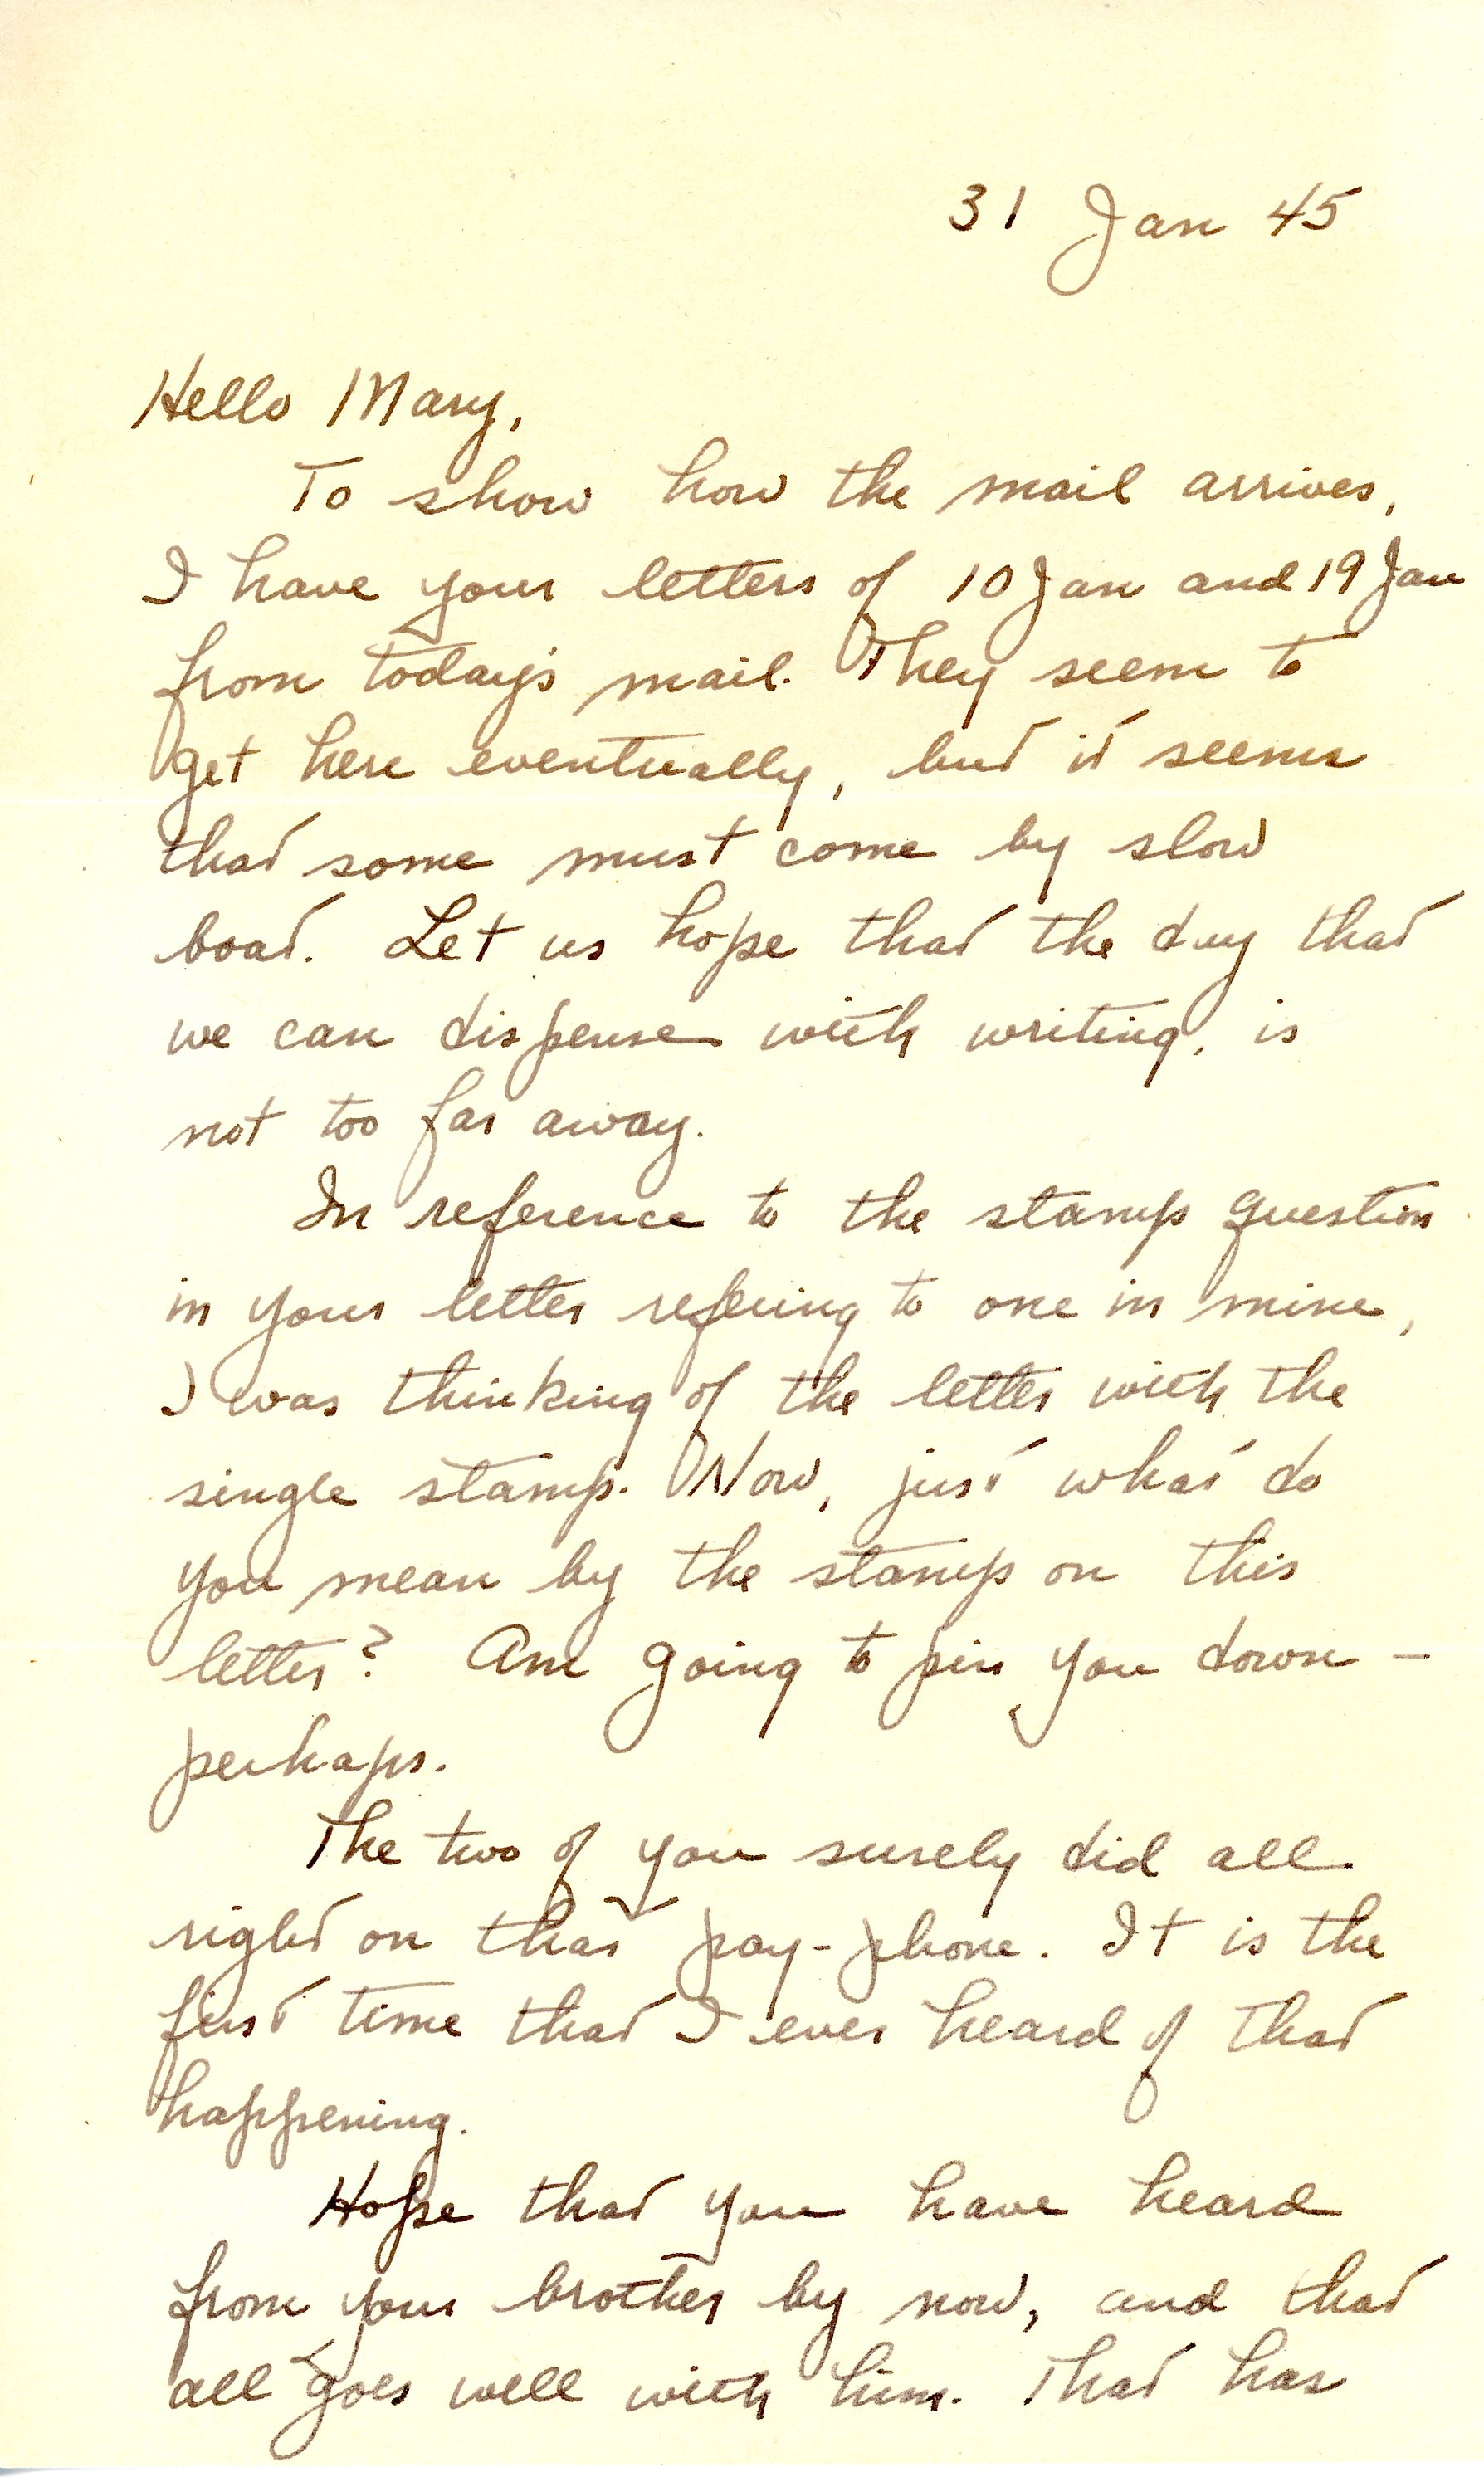 31 Jan 45
Hello Mary,
To show how the mail arrives,
I have your letters of 10 Jan and 19 Jan
from today's mail. They seem to
get here eventually, but it seems
that some must come by slow
boat. Let us hope that the day that
we can dispense with writing, is
not too far away.
In reference to the stamp question
in your letter refering to one in mine,
I was thinking of the letter with the
single stamp. Now, just what do
you mean by the stamp on this
letter? Am going to pin you down –
perhaps.
The two of you surely did all
right on that pay-phone. It is the
first time that I ever heard of that
happening.
Hope that you have heard
from your brother by now, and that
all goes well with him. That has